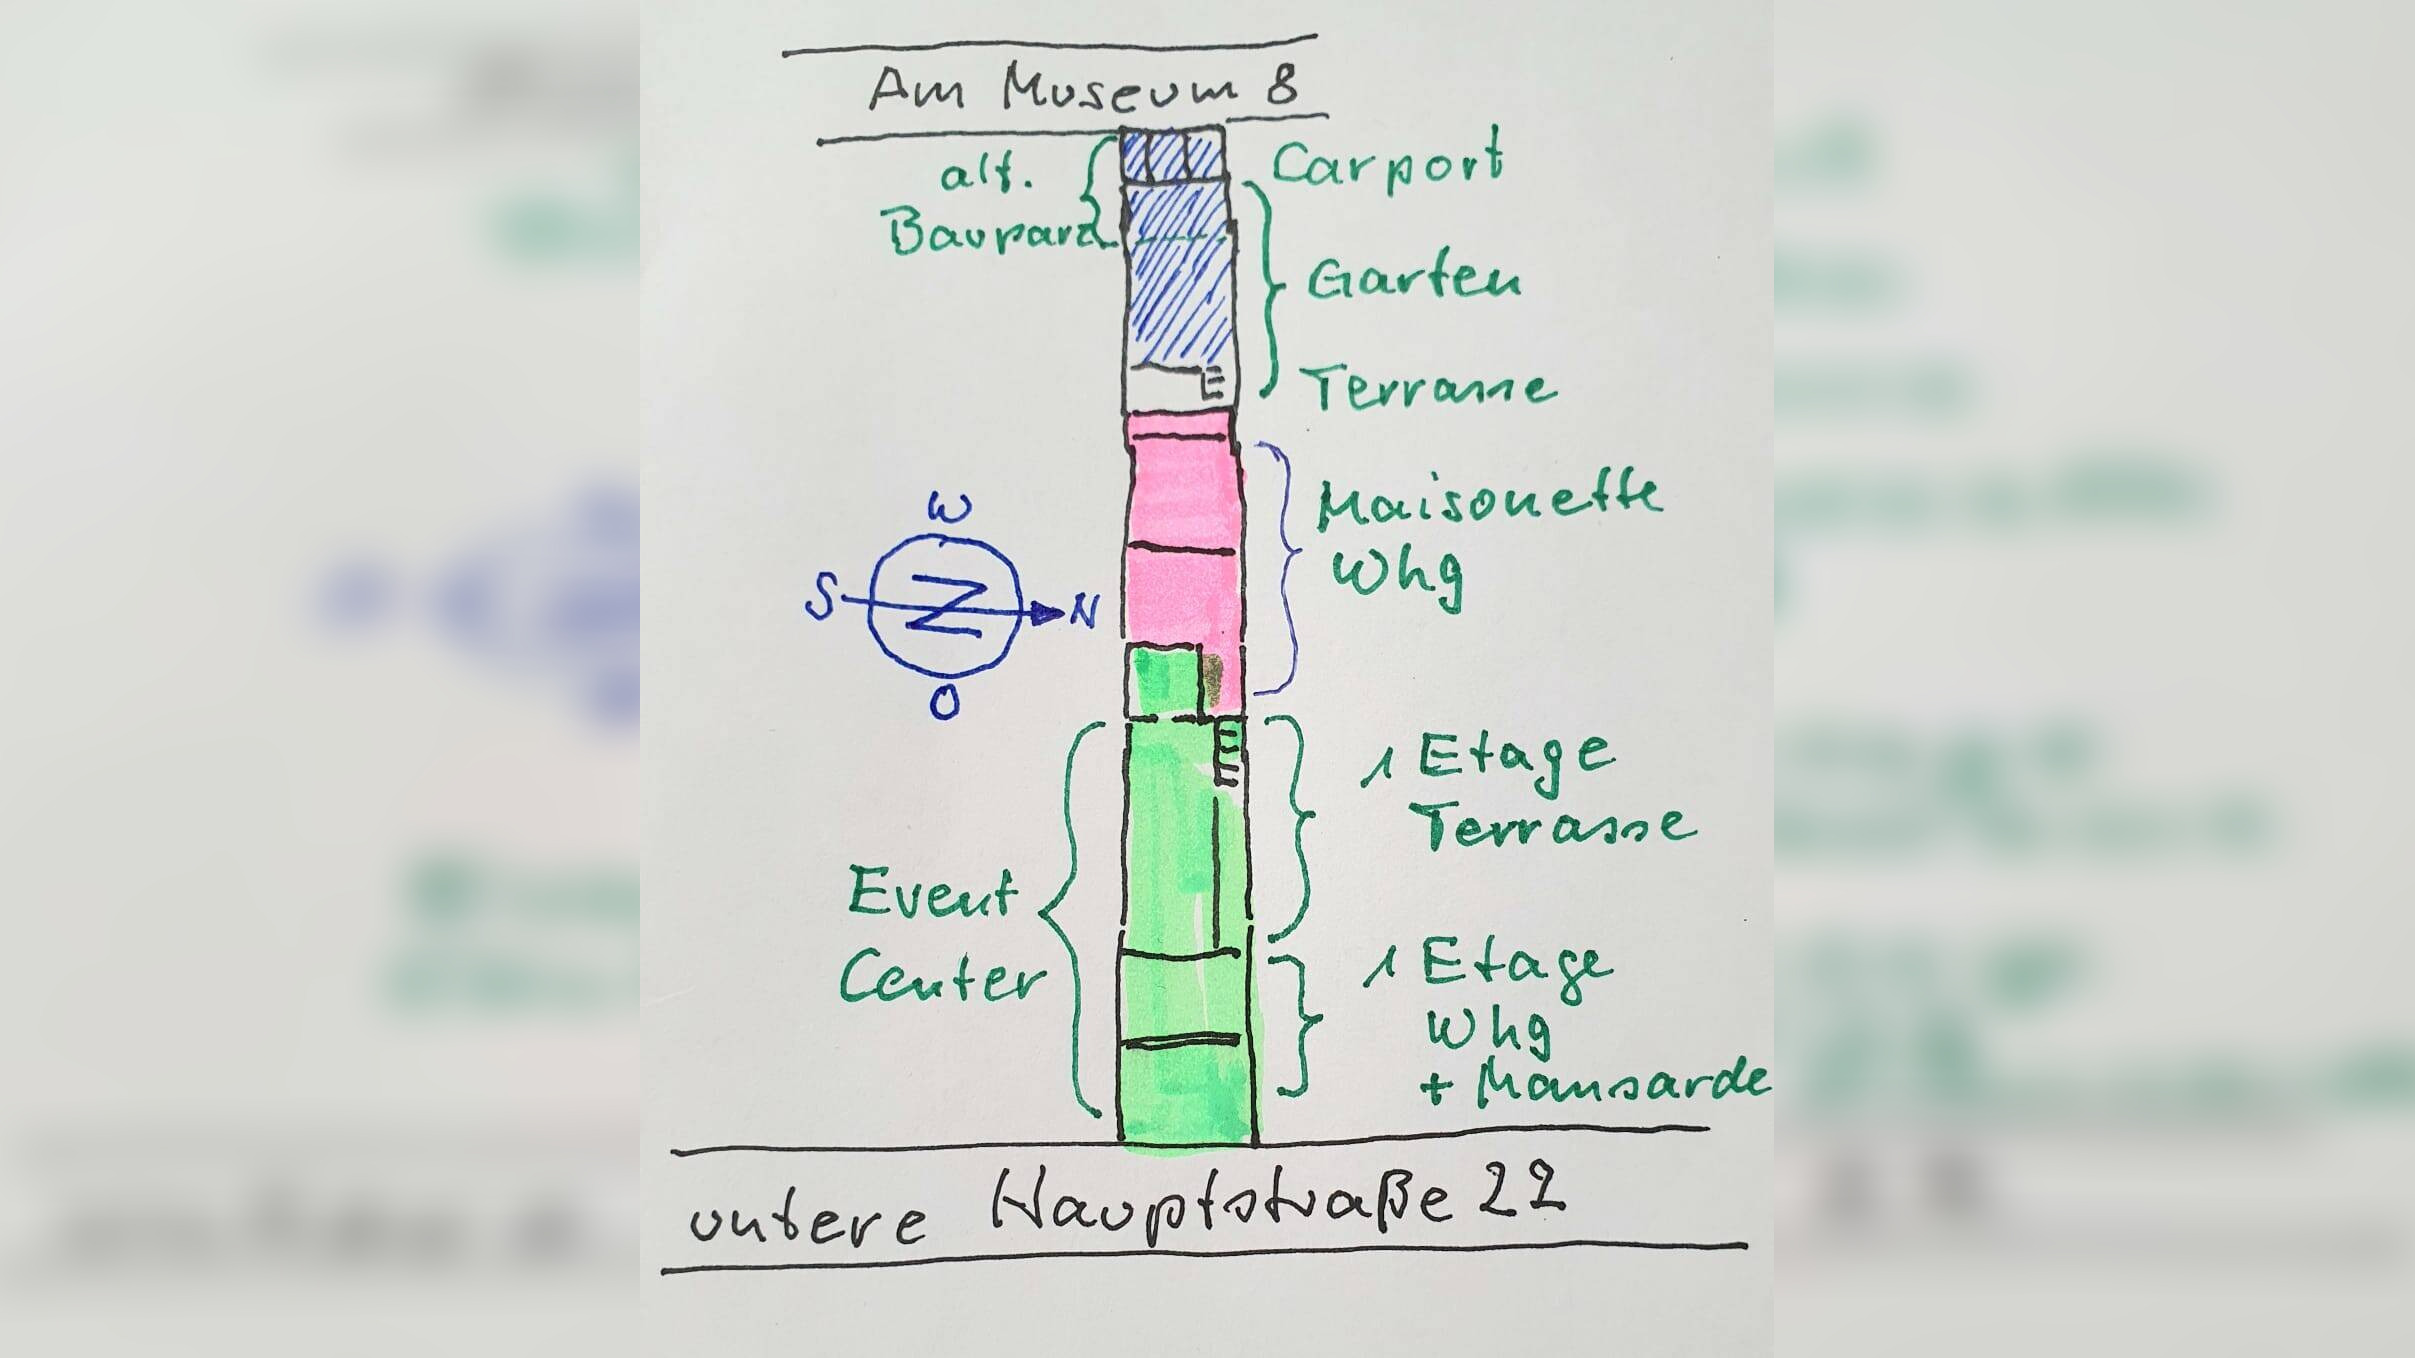 Am Museum 8
alt.
Bauparz.
Carport
Garten
Terrasse
W
S
N
N
O
Maisonette
Whg
1 Etage
Terrasse
Event
Center
1 Etage
Whg
+ Mansarde
untere Hauptstraße 22